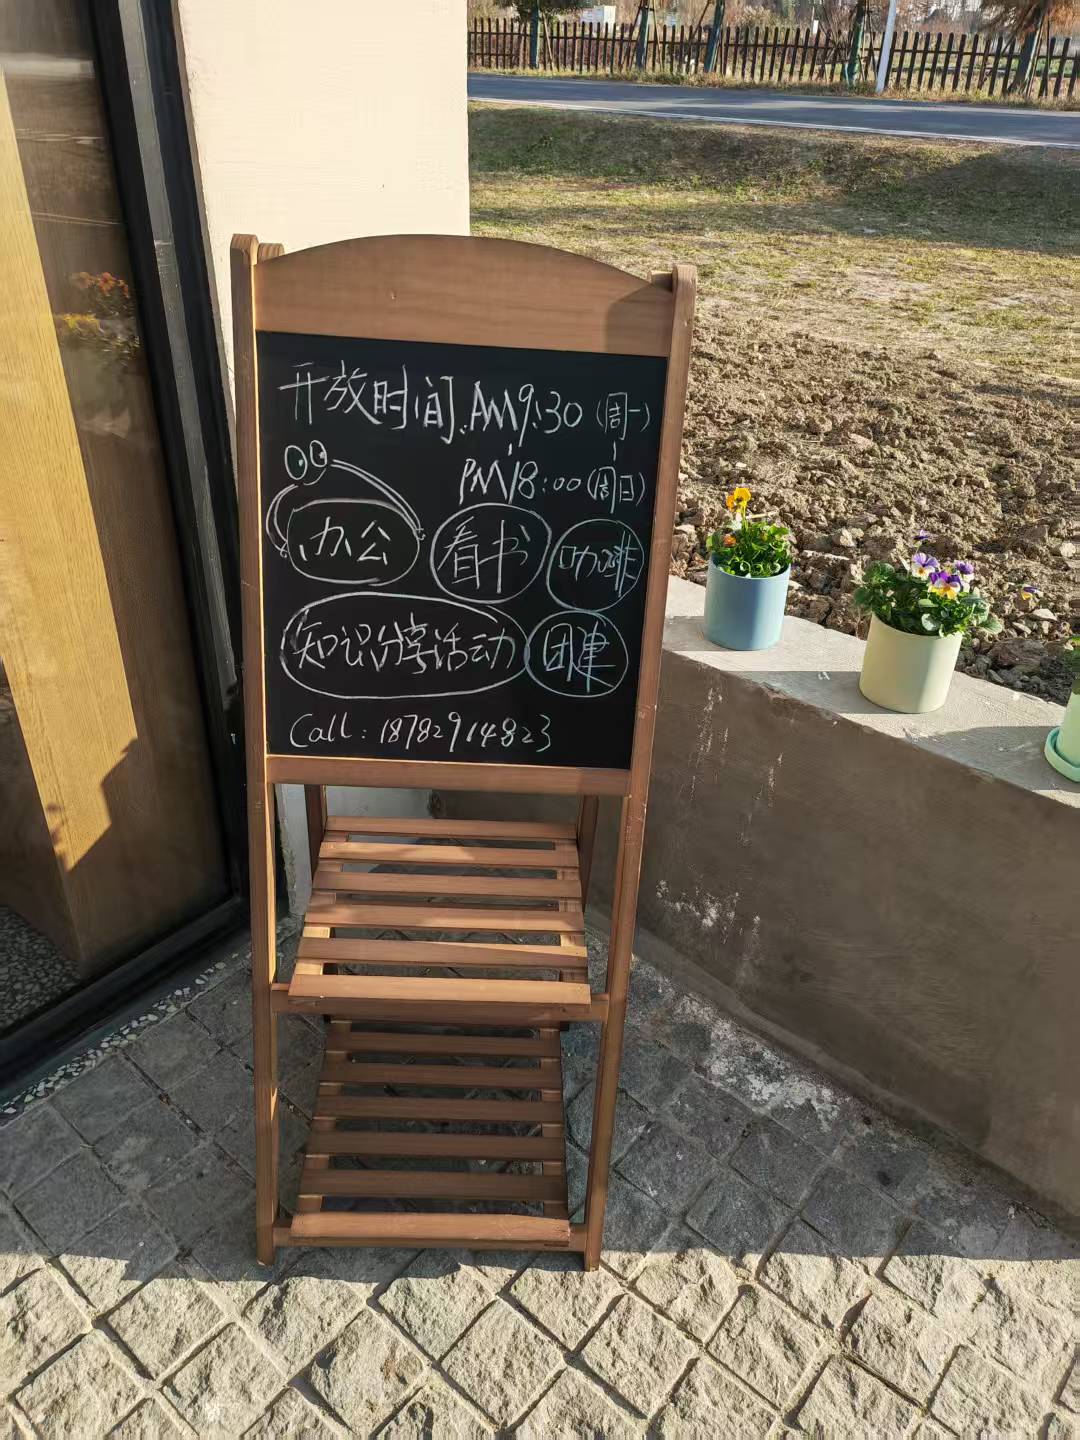 开放时间:AM9:30(周一)
PM18:00(周日)
办公 看书 咖啡
知识分享活动 团建
Call:18782914823